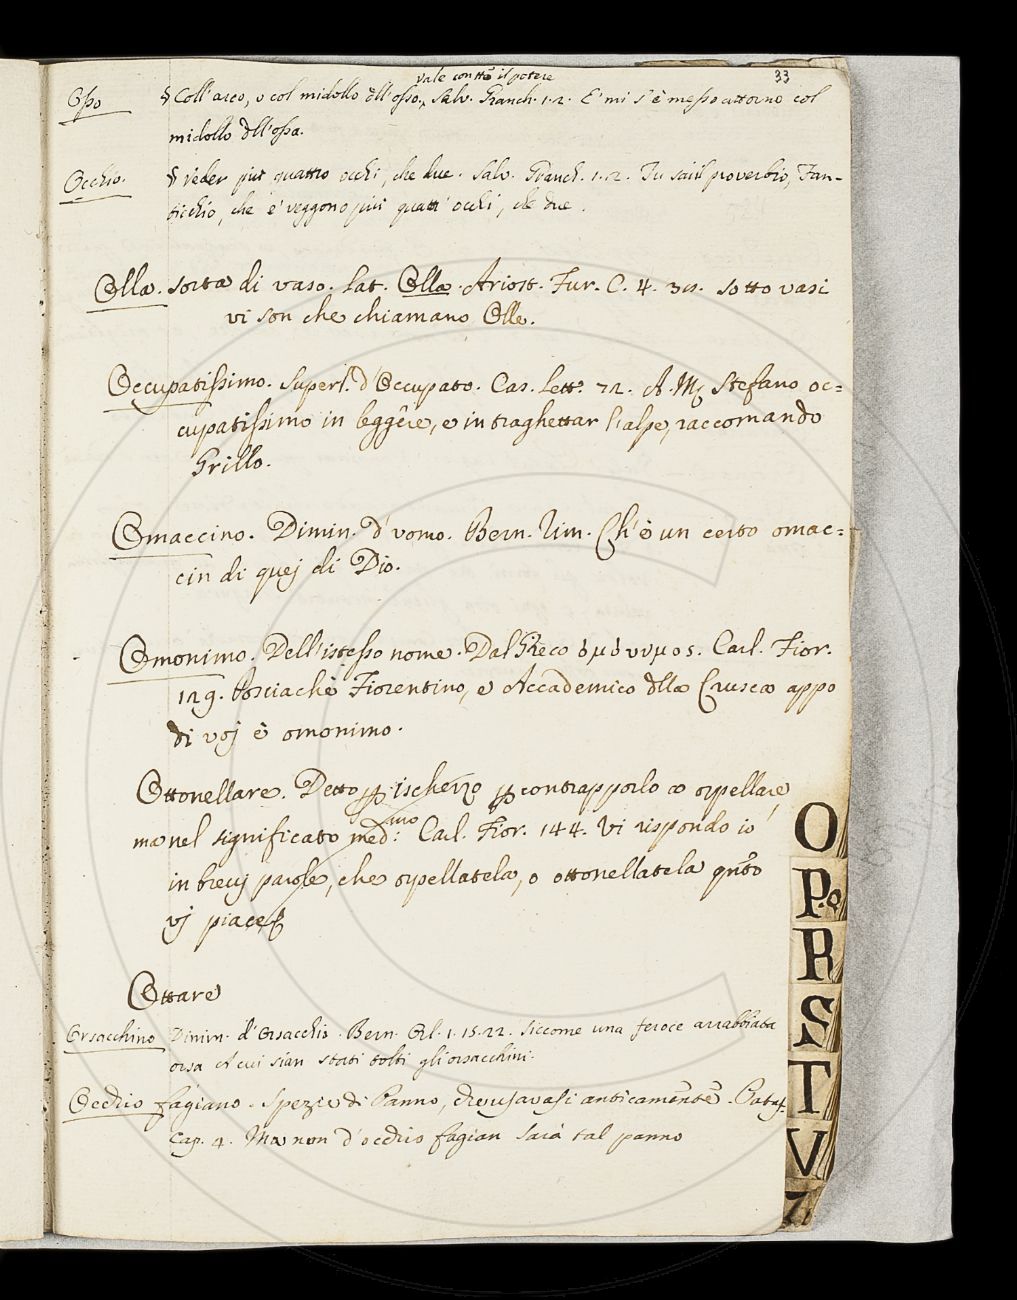 33
vale contro il potere
Osso § Coll'arco, o col midollo dell'osso, Salv. Granch. 1. 2. E' mi s'è messo attorno col
midollo dell'ossa.
Occhio. § Veder più quattro occhi, che due. Salv. Granch. 1. 2. Tu sai il proverbio, Fan-
ticchio, che e' veggono più quattr'occhi, che due.
Olla. sorta di vaso. Lat. Olla. Ariost. Fur. C. 4. 38. sotto vasi
vi son che chiamano Olle.
Occupatissimo. Superl. d'Occupato. Car. Lett. 72. A. M. Stefano oc=
cupatissimo in leggere, e in traghettar l'alpe, raccomando
Grillo.
Omaccino. Dimin. d'uomo. Bern. Rim. Ch'è un certo omac=
cin di quej di Dio.
Omonimo. Dell'istesso nome. Dal Greco ὁμώνυμος. Carl. Fior.
129. Posciachè Fiorentino, e Accademico della Crusca appo
di voj è omonimo.
Ottonellare. Detto per ischerzo per contrapporlo a orpellare
ma nel significato med.mo Carl. Fior. 144. Vi rispondo io
in brevj parole, che orpellatela, o ottonellatela quanto
vj piace
Ottare
Orsacchino Dimin. d'Orsacchio. Bern. Orl. 1. 15. 22. Siccome una feroce arrabbiata
orsa A cui sian stati tolti gli orsacchini.
Occhio fagiano. Spezie di Panno, che usavasi anticamente. Pataf.
Cap. 4. Ma non d'occhio fagian sarà tal panno
O
P.Q
R
S
T
V
Z